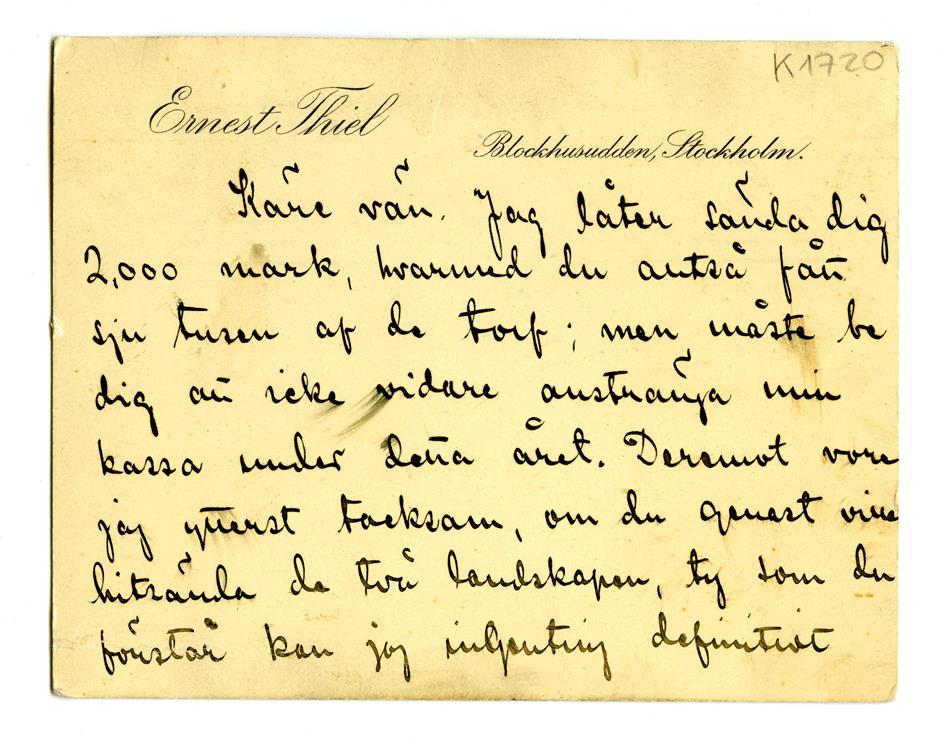 K1720
Ernest Thiel
Blockhusudden, Stockholm.
Käre vän. Jag låter sända dig
2,000 mark, hvarmed du altså fått
sju tusen af de torf; men måste be
dig att icke vidare anstränga min
kassa under detta året. Deremot vore
jag ytterst tacksam, om du genast ville
hitsända de två landskapen, ty som du
förstår kan jag ingenting definitivt